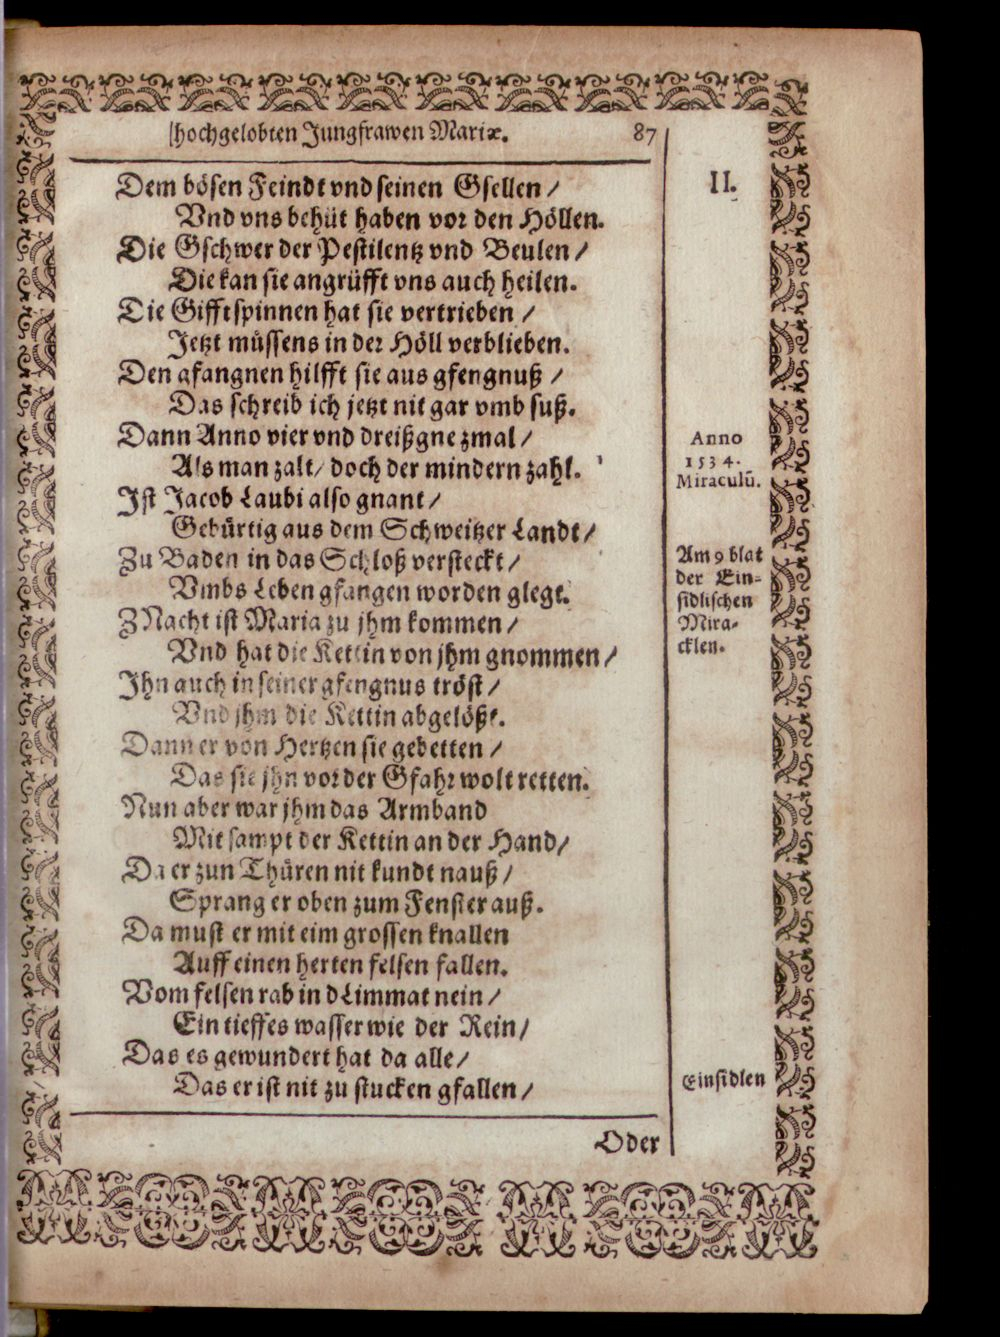 hochgelobten Jungfrawen Mariæ. 87
II.
Dem bösen Feindt vnd seinen Gsellen /
Vnd vns behüt haben vor den Höllen.
Die Gschwer der Pestilentz vnd Beulen /
Die kan sie angrüfft vns auch heilen.
Die Gifftspinnen hat sie vertrieben /
Jetzt müssens in der Höll verblieben.
Den gfangnen hilfft sie aus gfengnuß /
Das schreib ich jetzt nit gar vmb suß.
Dann Anno vier vnd dreißgne zmal /
Als man zalt / doch der mindern zahl.
Ist Jacob Laubi also gnant /
Gebürtig aus dem Schweitzer Landt /
Zu Baden in das Schloß versteckt /
Vmbs Leben gfangen worden glegt.
ZNacht ist Maria zu jhm kommen /
Vnd hat die Kettin von jhm gnommen /
Ihn auch in seiner gfengnus tröst /
Vnd jhm die Kettin abgelößt.
Dann er von Hertzen sie gebetten /
Das sie jhn vor der Gfahr wolt retten.
Nun aber war jhm das Armband
Mit sampt der Kettin an der Hand /
Da er zun Thüren nit kundt nauß /
Sprang er oben zum Fenster auß.
Da must er mit eim grossen knallen
Auff einen herten felsen fallen.
Vom felsen rab in dLimmat nein /
Ein tieffes wasser wie der Rein /
Das es gewundert hat da alle /
Das er ist nit zu stucken gfallen /
Oder
Anno
1534.
Miraculū.
Am 9 blat
der Ein-
sidlischen
Mira-
cklen.
Einsidlen